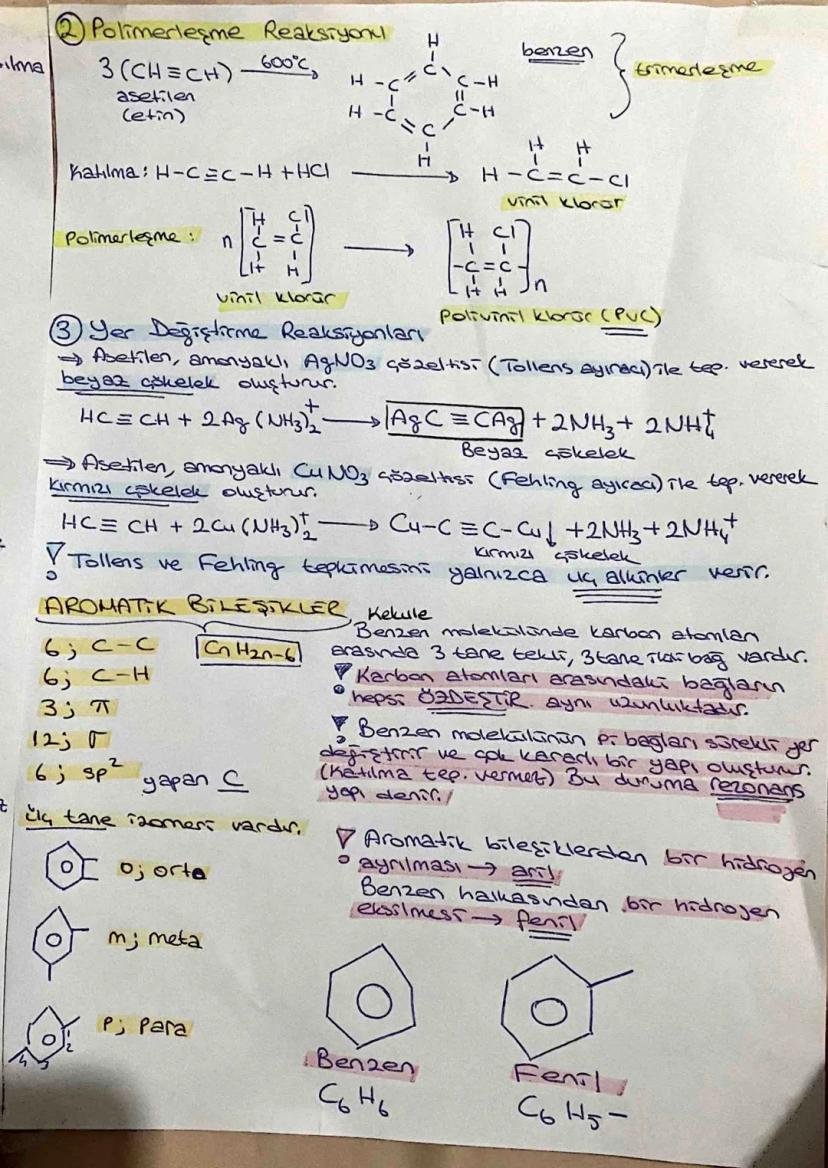 ılma
② Polimerleşme Reaksiyonu
3(CH≡CH) 600°C → benzen } trimerleşme
asetilen
(etin)
H
C
H-C C-H
H-C C-H
C
H
Katılma: H-C≡C-H + HCl → H-C=C-Cl
H H
vinil klorür
Polimerleşme: n [C=C] → [-C=C-]n
H Cl H Cl
H H H H
vinil klorür
Polivinil klorür (PVC)
③ Yer Değiştirme Reaksiyonları
⇒ Asetilen, amonyaklı AgNO₃ çözeltisi (Tollens ayıracı) ile tep. vererek
beyaz çökelek oluşturur.
HC≡CH + 2Ag(NH₃)₂⁺ → AgC≡CAg + 2NH₃ + 2NH₄⁺
Beyaz çökelek
⇒ Asetilen, amonyaklı CuNO₃ çözeltisi (Fehling ayıracı) ile tep. vererek
kırmızı çökelek oluşturur.
HC≡CH + 2Cu(NH₃)₂⁺ → Cu-C≡C-Cu↓ + 2NH₃ + 2NH₄⁺
kırmızı çökelek
! Tollens ve Fehling tepkimesini yalnızca uç alkinler verir.
AROMATİK BİLEŞİKLER
CnH2n-6
6; C-C
6; C-H
3; π
12; σ
6; sp² yapan C
Üç tane izomeri vardır.
o; orto
m; meta
p; para
2
3
4
Kekule
Benzen molekülünde karbon atomları
arasında 3 tane tekli, 3 tane ikili bağ vardır.
! Karbon atomları arasındaki bağların
hepsi ÖZDEŞTİR. aynı uzunluktadır.
! Benzen molekülünün pi bağları sürekli yer
değiştirir ve çok kararlı bir yapı oluşturur.
(Katılma tep. vermez) Bu duruma rezonans
yapı denir.
! Aromatik bileşiklerden bir hidrojen
ayrılması → aril
Benzen halkasından bir hidrojen
eksilmesi → fenil
Benzen
C₆H₆
Fenil
C₆H₅-